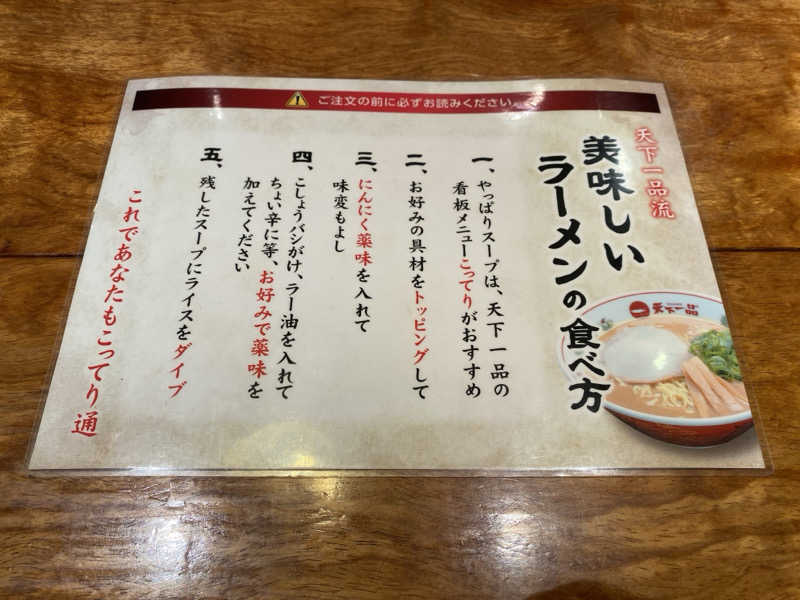 ご注文の前に必ずお読みください
天下一品流
美味しい
ラーメンの食べ方
一、やっぱりスープは、天下一品の
看板メニューこってりがおすすめ
二、お好みの具材をトッピングして
三、にんにく薬味を入れて
味変もよし
四、こしょうバシがけ、ラー油を入れて
ちょい辛に等、お好みで薬味を
加えてください
五、残したスープにライスをダイブ
これであなたもこってり通
天下一品